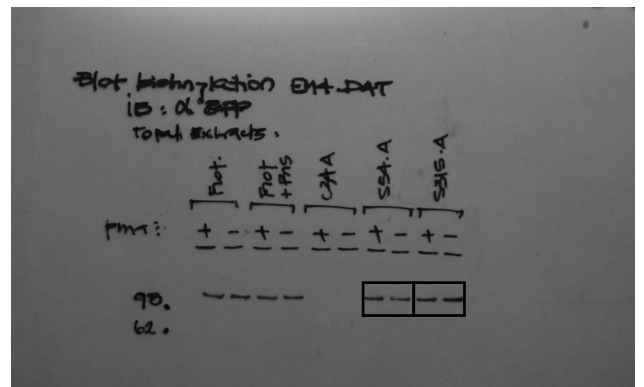 Blot biotinylation EM4.DAT
IB: α GFP
Total Extracts:
Flot. Flot +PMS C34A S54.A S315.A
PMA: + - + - + - + - + -
98.
62.